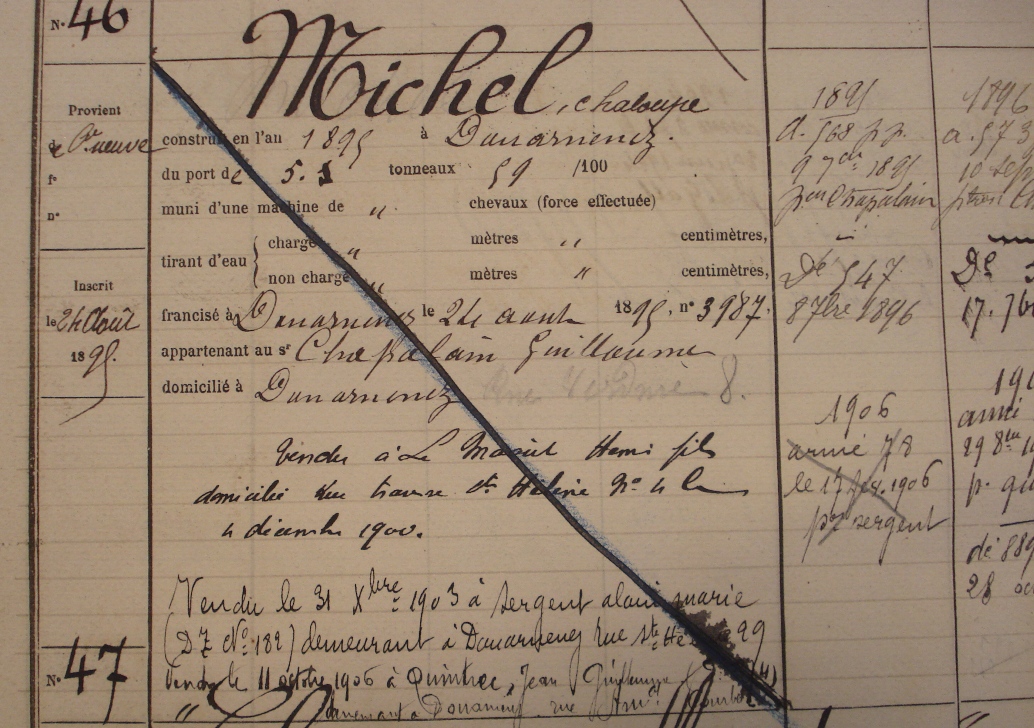 N° 46
Michel, chaloupe
Provient
de Cn neuve
f°
n°
Inscrit
le 24 Août
1895.
construit en l'an 1895 à Douarnenez.
du port de 5. tonneaux 59 /100
muni d'une machine de " chevaux (force effectuée)
tirant d'eau { chargé " mètres " centimètres,
non chargé " mètres " centimètres,
francisé à Douarnenez le 24 aout 1895, n° 3987.
appartenant au sr Chapalain Guillaume
domicilié à Douarnenez 8.
Vendu à Le Henri fils
domicilié rue traverse Ste Hélène No 4 le
4 décembre 1900.
Vendu le 31 Xbre 1903 à Sergent alain marie
(DZ No 182) demeurant à Douarnenez rue Ste 29
Vendu le 11 octobre 1906 à Quintrec, Jean Guillaume
Demeurant à Douarnenez rue
N° 47
1895
d. 568 pp.
9 7bre 1895
pon Chapalain
Dé 547
8 7bre 1896
1906
armé 78
le 17 fév. 1906
pr sergent
1896
a. 573
10 sep
Dé
17.
190
armé
29 8bre
p. qu
dé 889
28 oc